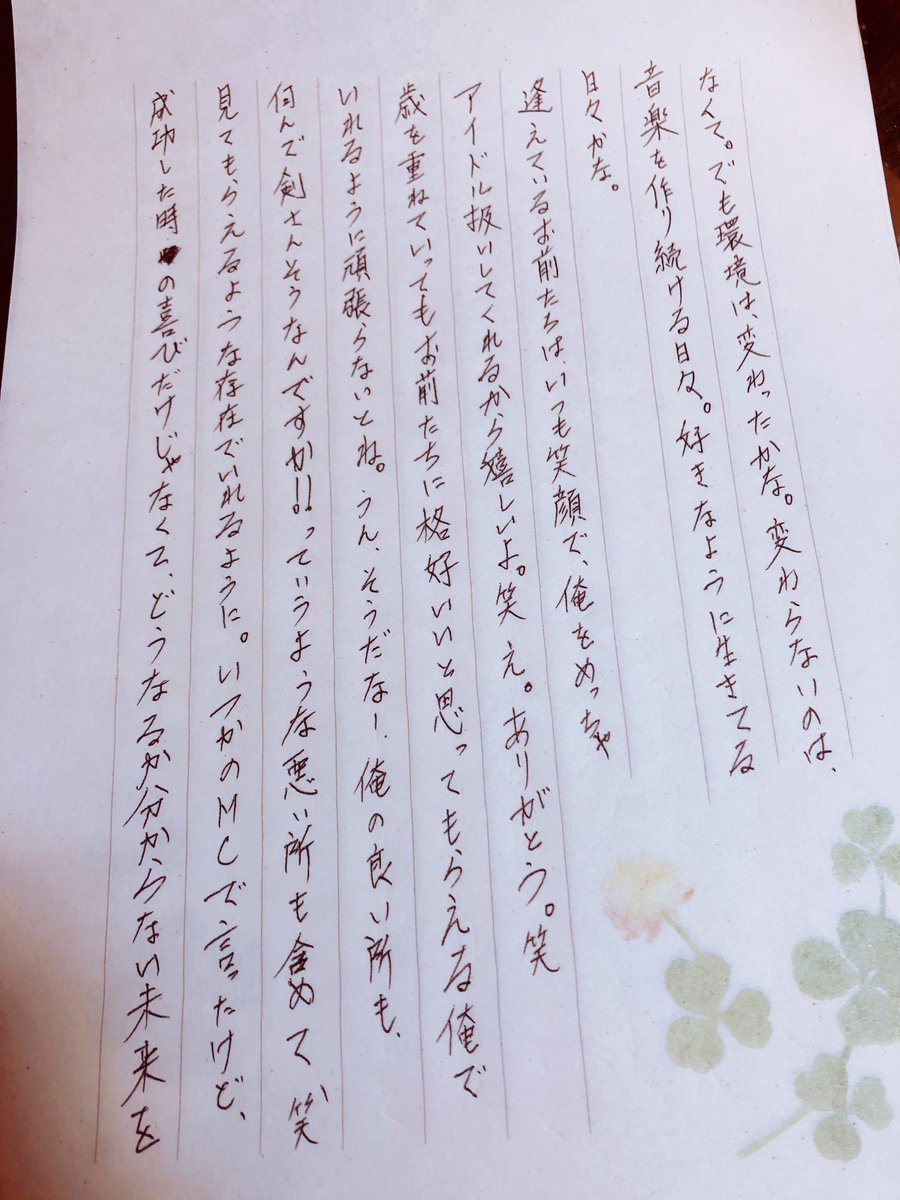 なくて。でも環境は、変わったかな。変わらないのは、
音楽を作り続ける日々。好きなように生きてる
日々かな。
逢えているお前たちは、いつも笑顔で、俺をめっちゃ
アイドル扱いしてくれるから嬉しいよ。笑 え。ありがとう。笑
歳を重ねていってもお前たちに格好いいと思ってもらえる俺で
いれるように頑張らないとね。うん、そうだなー。俺の良い所も、
何んで剣さんそうなんですか!!っていうような悪い所も含めて 笑
見てもらえるような存在でいれるように。いつかのMCで言ったけど、
成功した時の喜びだけじゃなくて、どうなるか分からない未来を